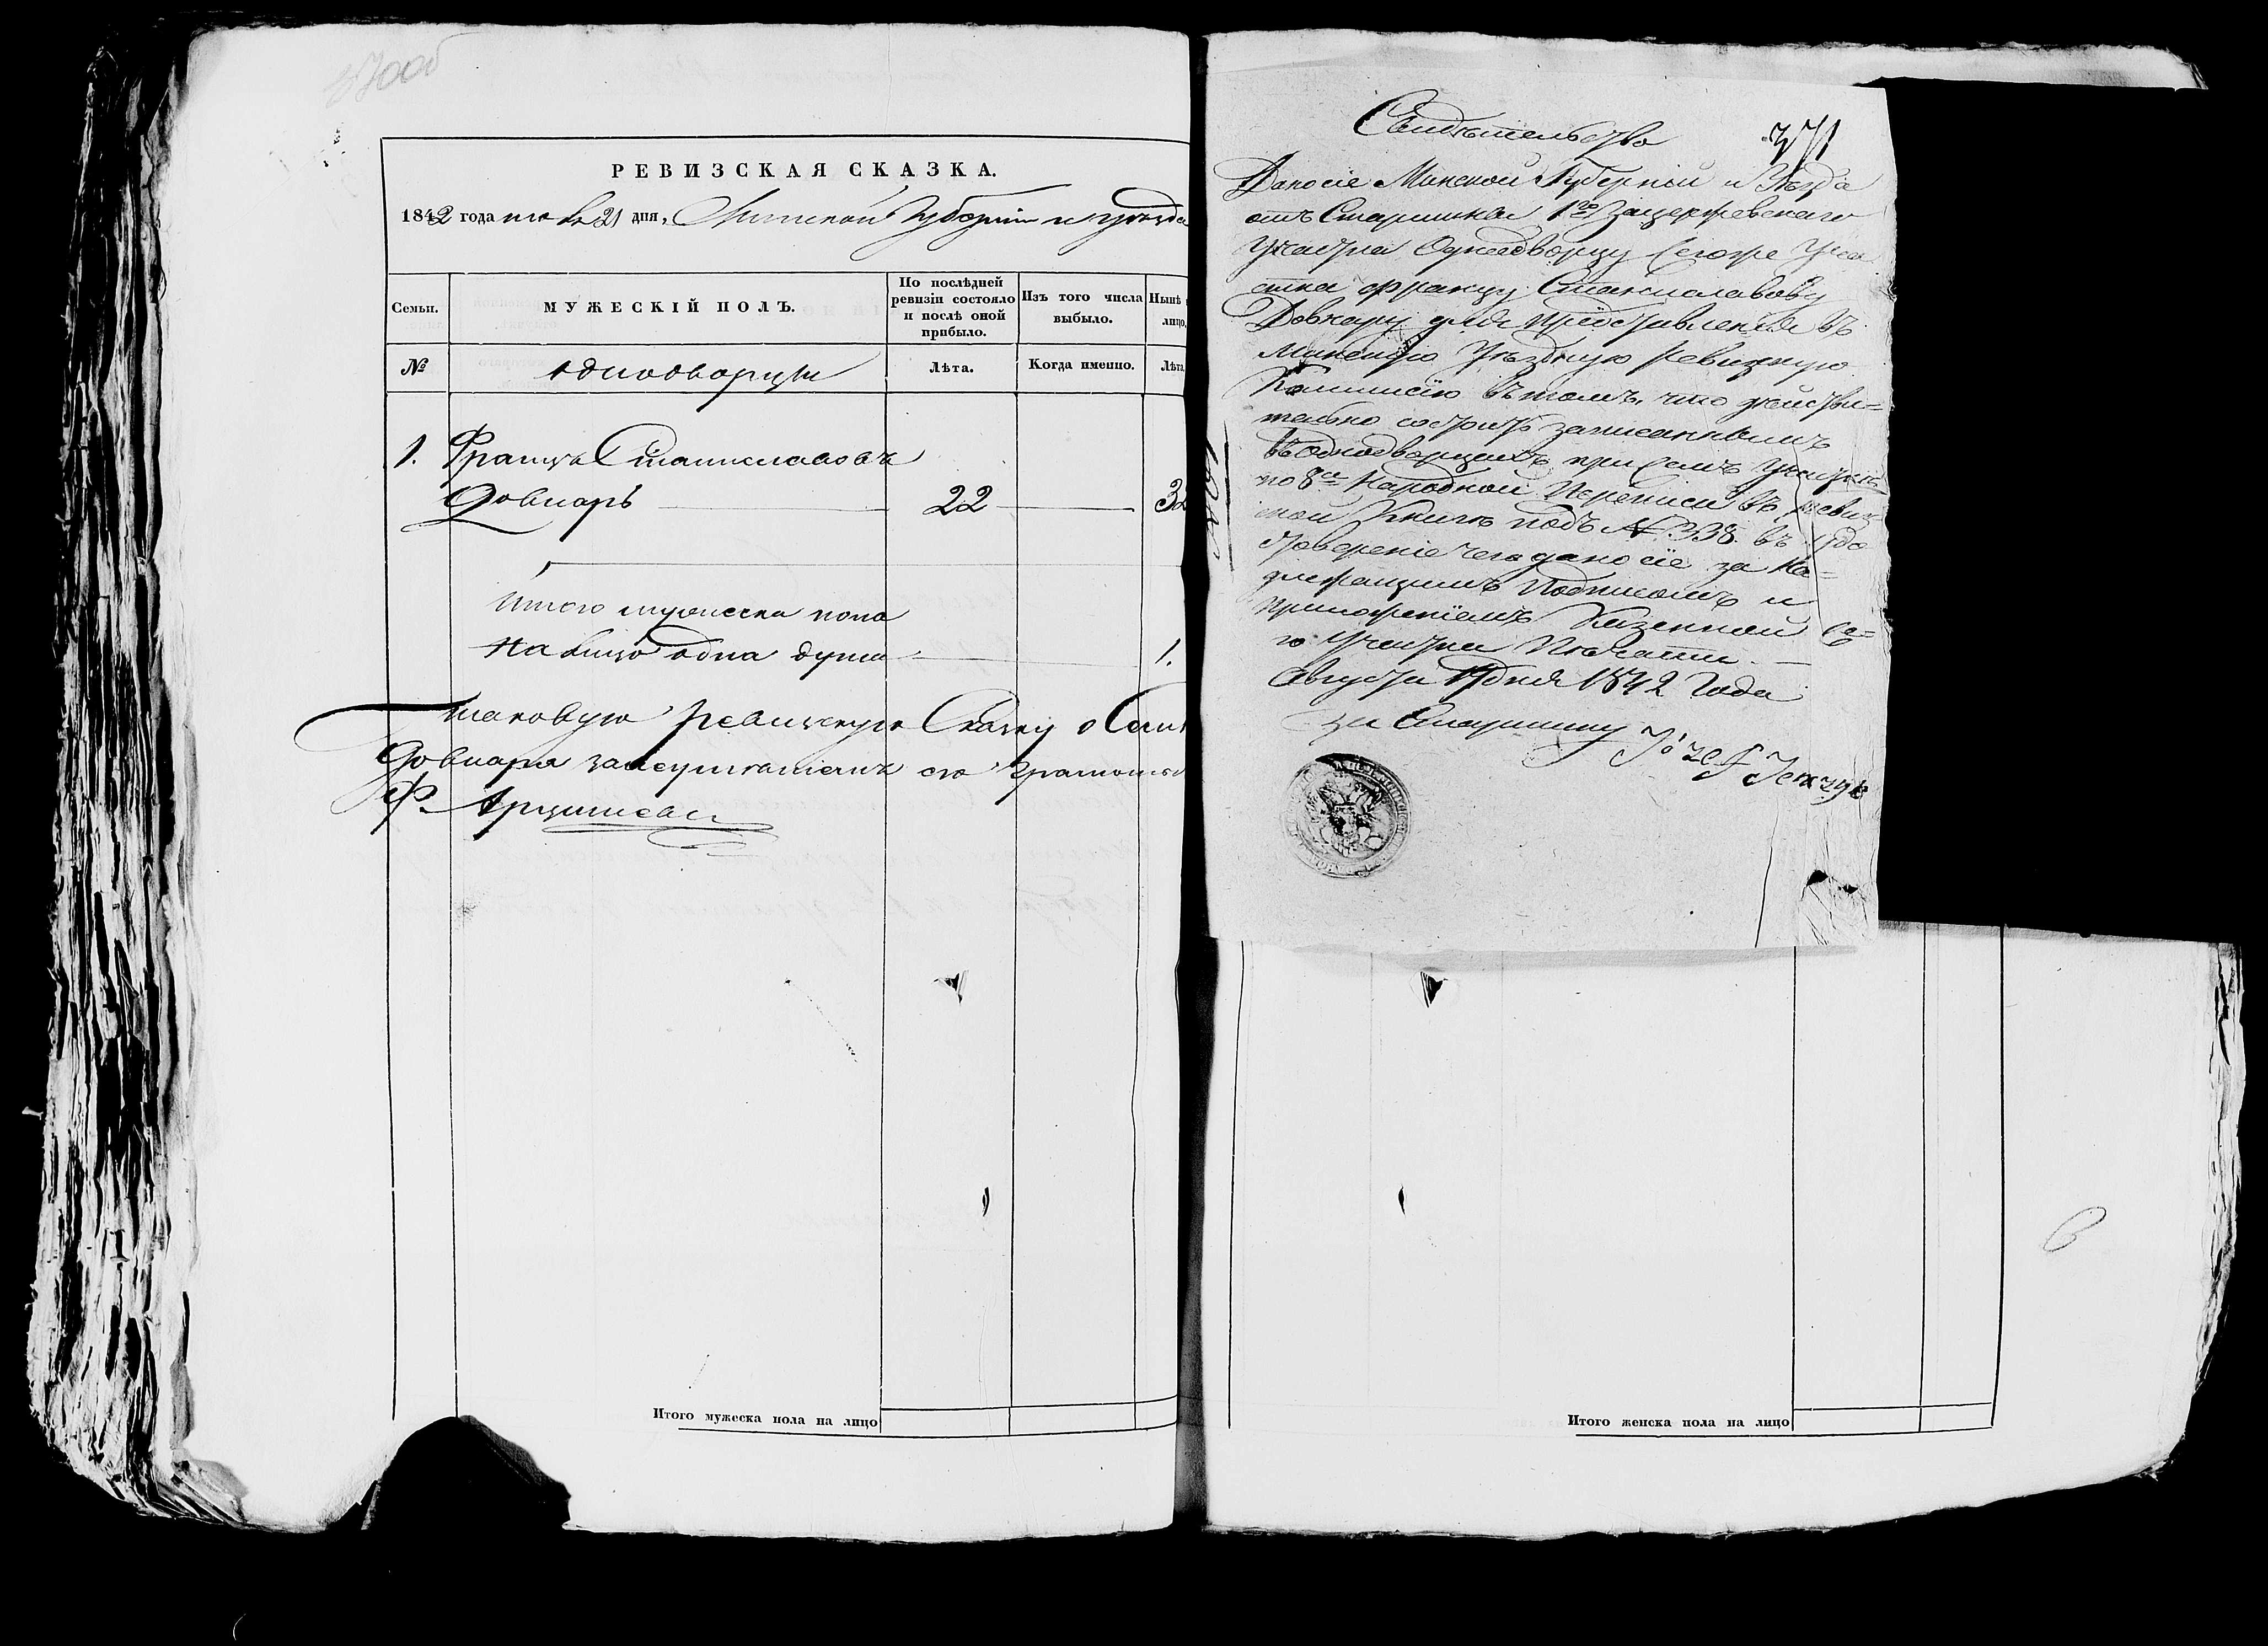 РЕВИЗСКАЯ СКАЗКА.
1842 года 21 дня, Минской Губернiи и уѣзда
Семьи.
МУЖЕСКІЙ ПОЛЪ.
По послѣдней
ревизіи состояло
и послѣ оной
прибыло.
Изъ того числа
выбыло.
Нынѣ
лицо.
№
однодворцы
Лѣта.
Когда именно.
Лѣта
1. Францъ Станиславовъ
Довнаръ 22
Итого мужеска пола
на лицо одна душа 1.
таковую ревизскую Сказку о Семь
Довнара за неумѣніемъ его грамоты
Итого мужеска пола на лицо
Свидѣтельство
371
Дано сіе Минской Губерніи и Уѣзда
отъ Старшины 1го
Участка Однодворцу сегоже Уча
стка Францу Станиславову
Довнару для Предъставленія въ
Минскую Уѣздную Ревизкую
Коммисію въ томъ, что дѣйстви=
тельно состоитъ записаннымъ
въ Однодворцахъ при семъ Участкѣ
по 8ой Народной Переписи въ ревиз
ской Книгѣ подъ № 338. въ удо
стовереніе чего дано сіе за На=
длежащимъ Подписомъ и
приложеніемъ Казенной се=
го Участка Печати.
Августа дня 1842 Года
за Старшину
Józef
Итого женска пола на лицо